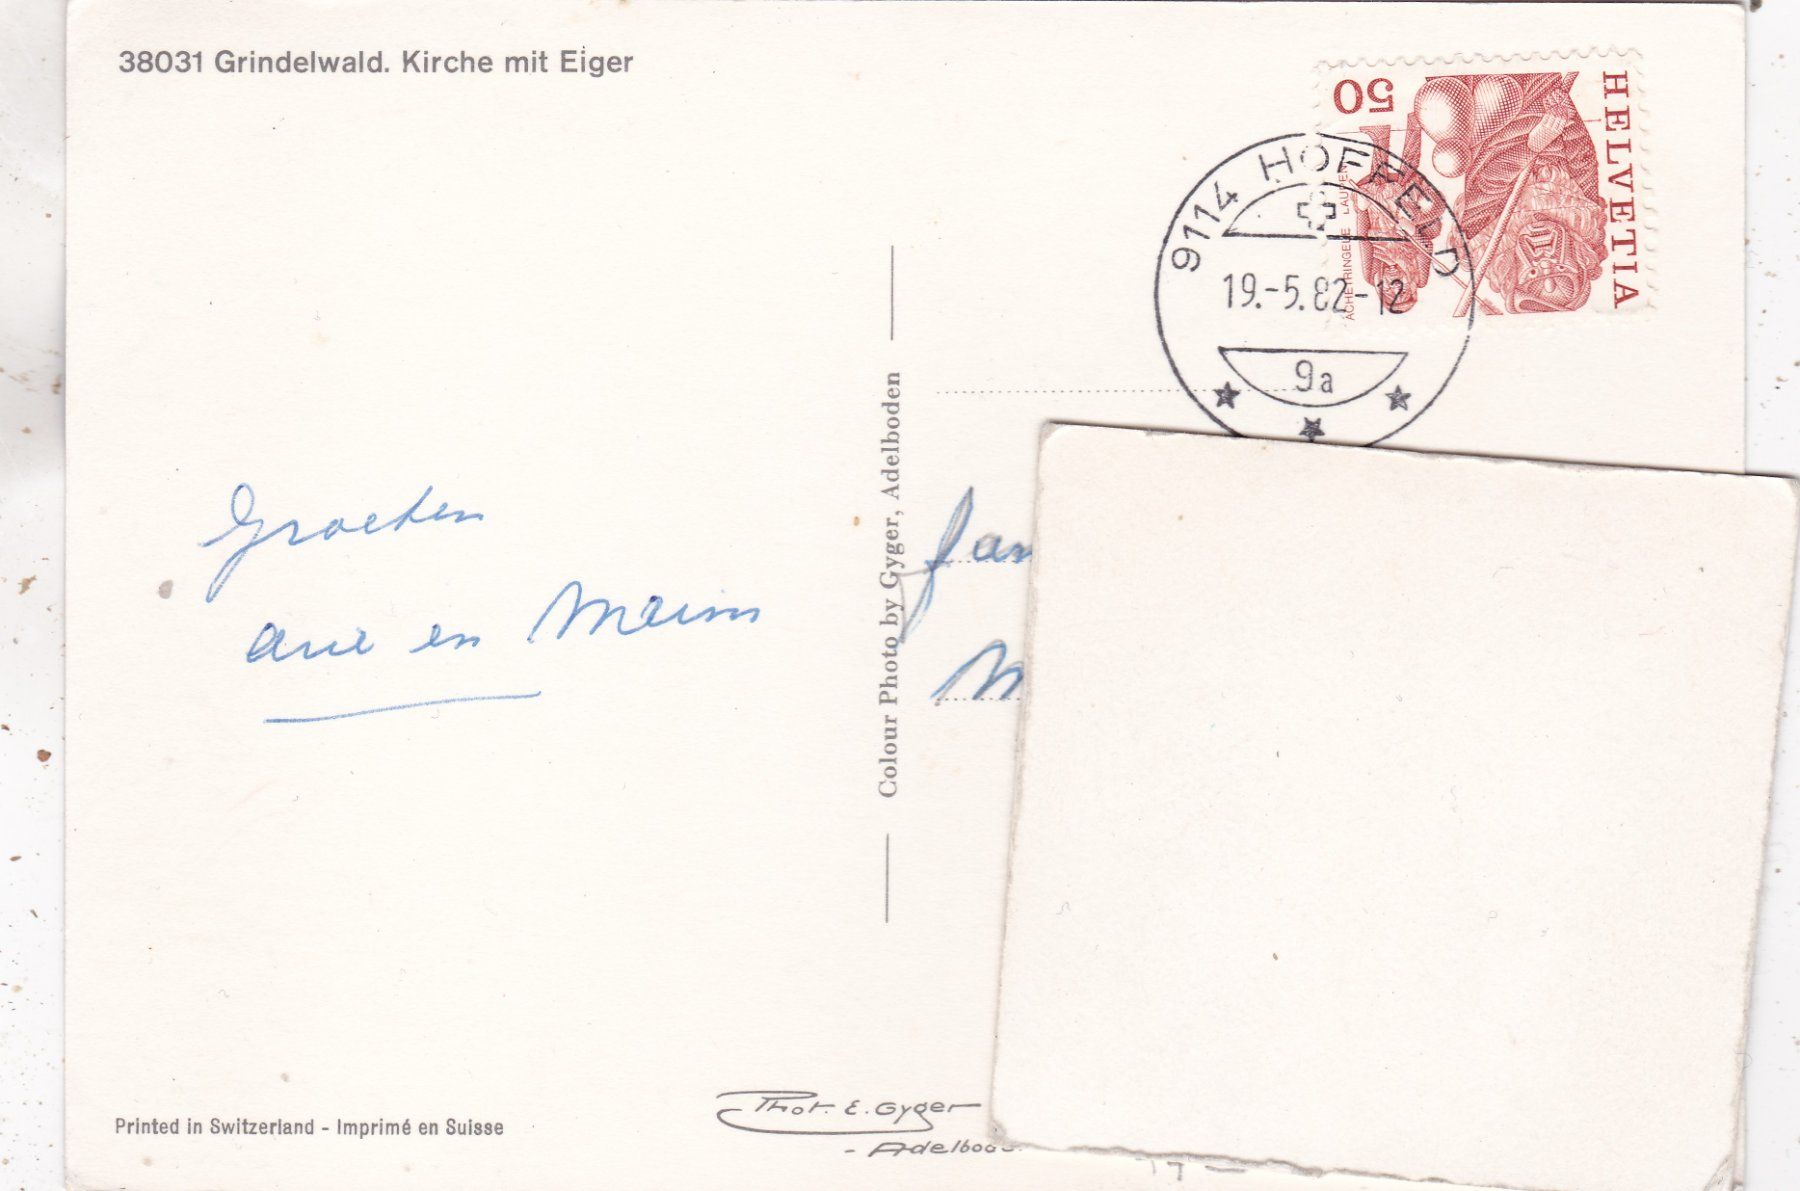 38031 Grindelwald. Kirche mit Eiger
HELVETIA
50
ACHETRINGELE LAUPEN
9114 HOFFELD
19.-5.82-12
9a
Colour Photo by Gyger, Adelboden
Groeten
en
Fam
M
Printed in Switzerland - Imprimé en Suisse
Phot. E. Gyger
- Adelbode